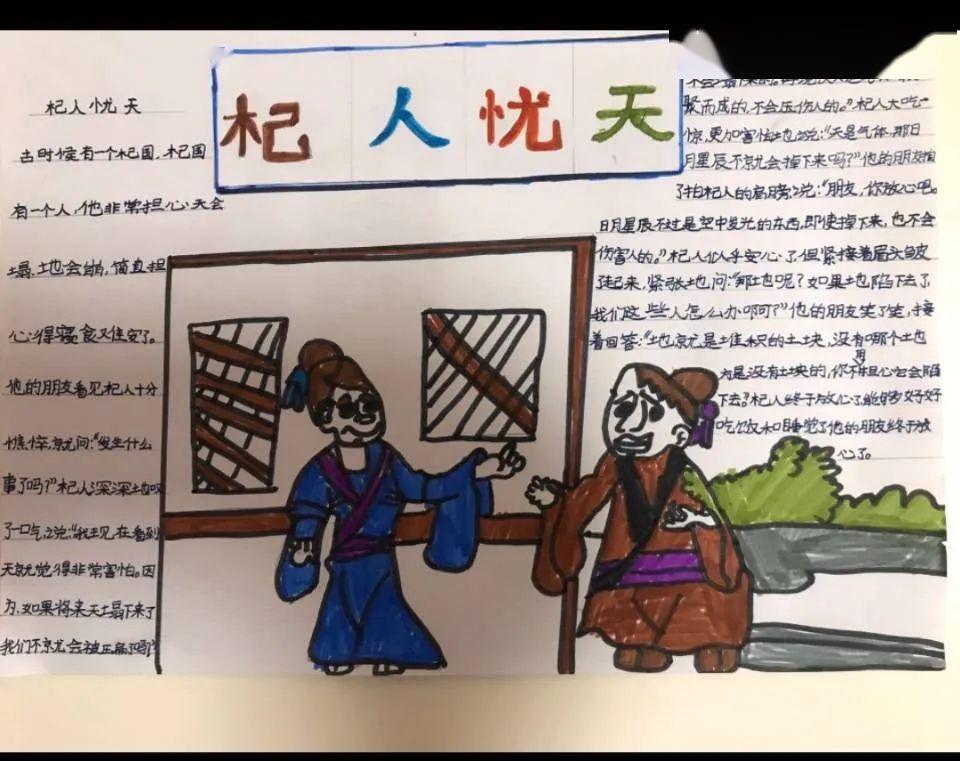 杞人忧天
杞人忧天
古时候有一个杞国,杞国
有一个人,他非常担心天会
塌、地也会崩,简直担
心得寝食难安了。
他的朋友看见杞人十分
憔悴,就问:“发生什么
事了吗?”杞人深深地叹
了一口气,说:“我现在看到
天就觉得非常害怕。因
为,如果将来天塌下来了
我们不就会被压扁了吗?
聚而成的,不会压伤人的。”杞人大吃一
惊,更加害怕地说:“天是气体,那日
月星辰不就会掉下来吗?”他的朋友拍
了拍杞人的肩膀,说:“朋友,你放心吧。
日月星辰不过是空中发光的东西,即使掉下来,也不会
伤害人的。”杞人似乎安心了,但紧接着眉头皱
了起来,紧张地问:“那地呢?如果地陷下去了
我们这些人怎么办啊可?”他的朋友笑了笑,接
着回答:“地就是堆积的土块,没有哪个地
方是没有土块的,你不用担心它会陷
下去。”杞人终于放心了,能够好好
吃饭和睡觉了他的朋友终于放
心了。